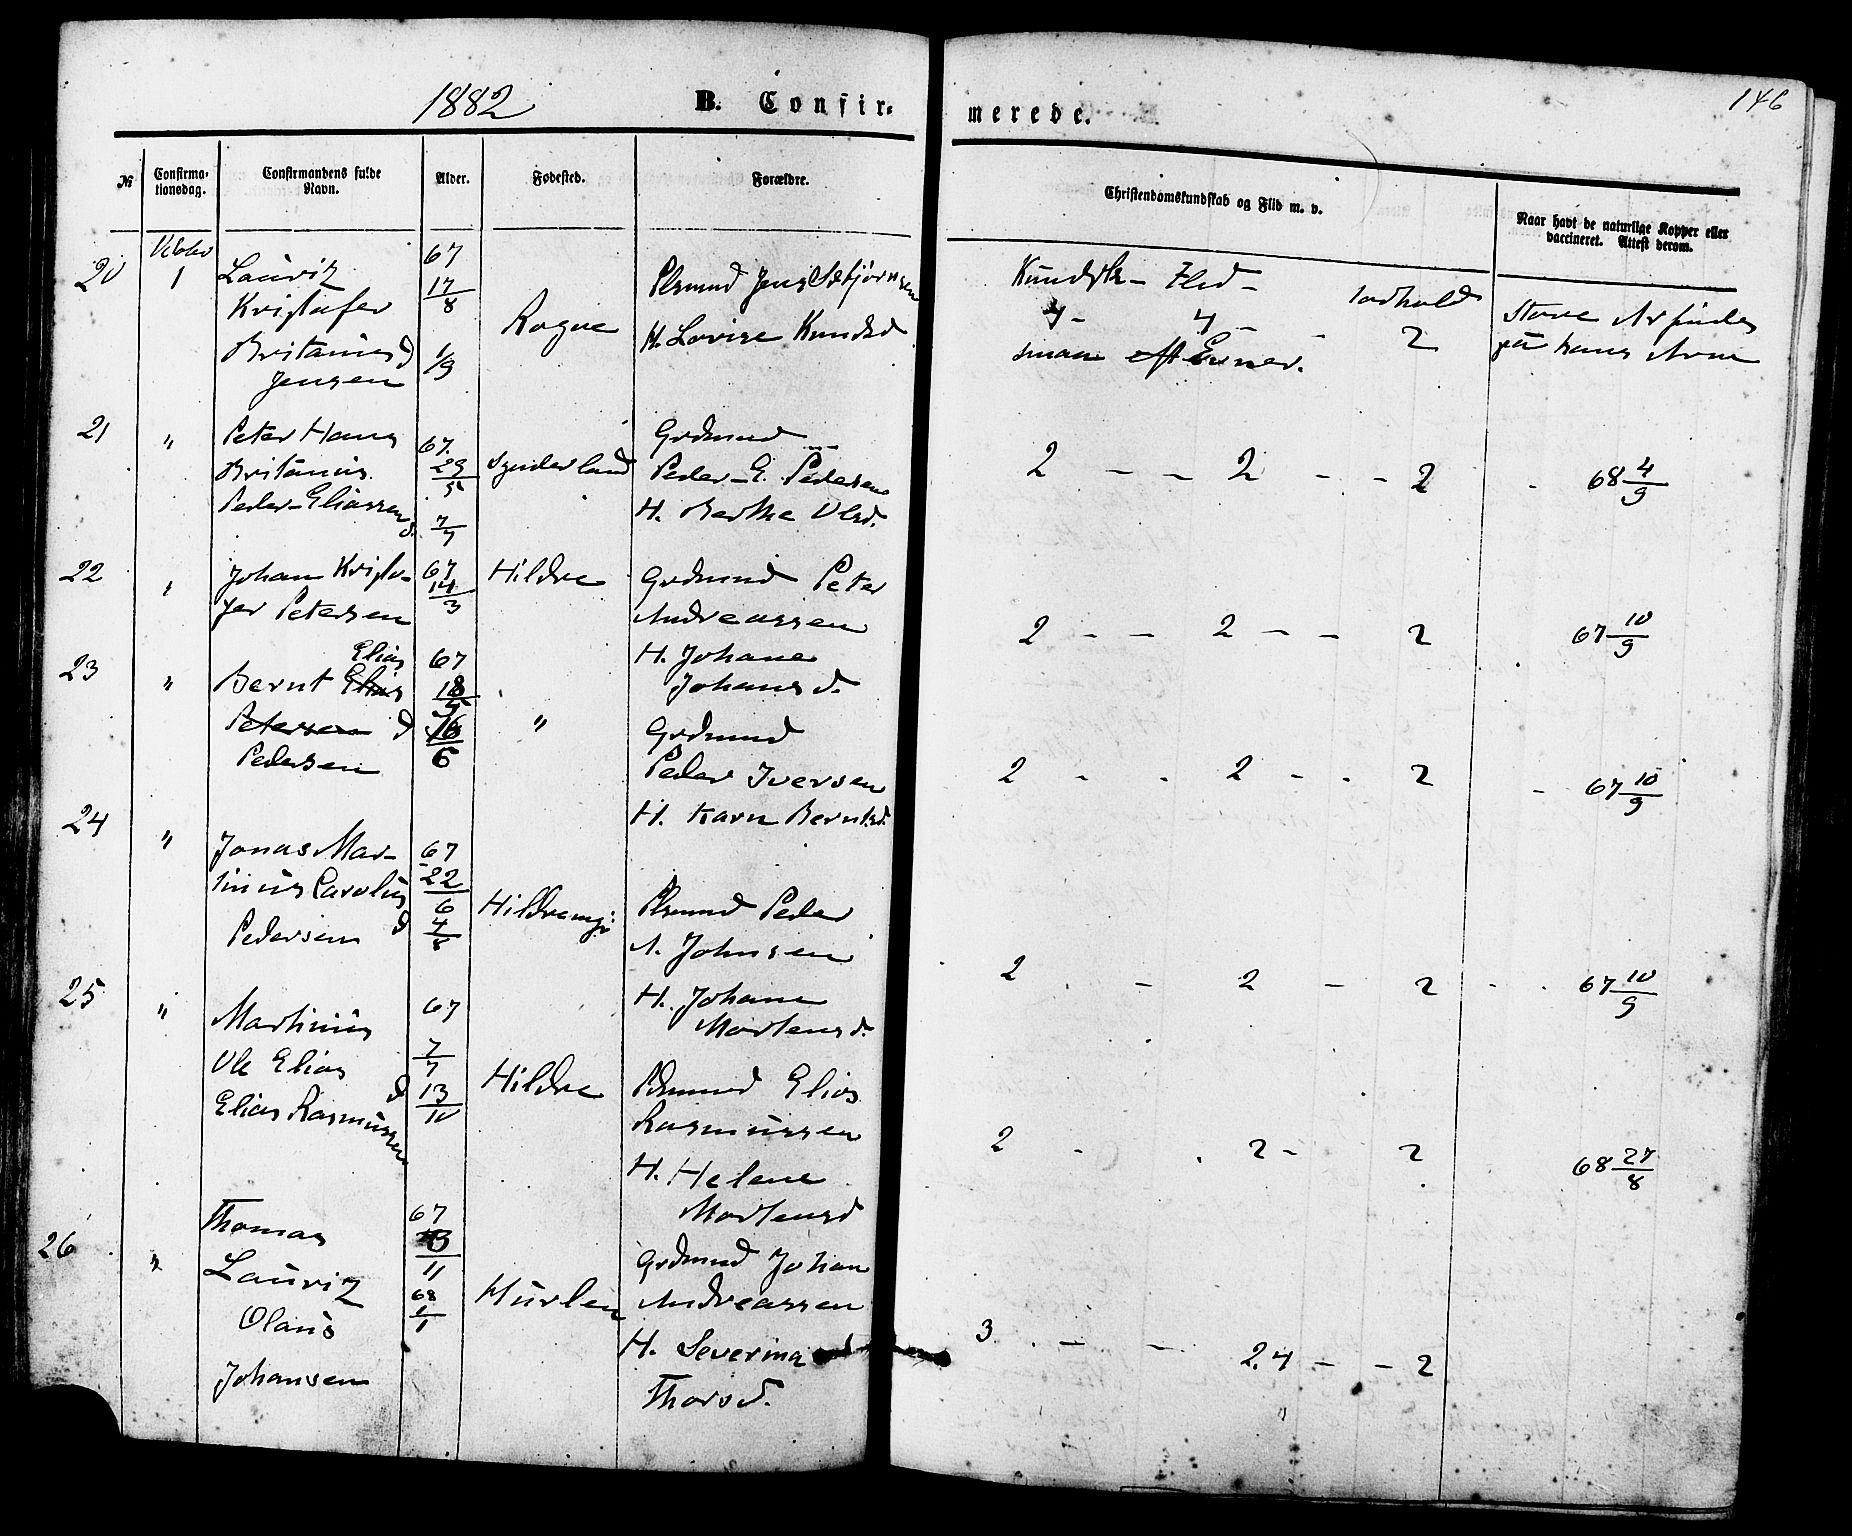 1882
B. Confir-
merede.
146
№
Confirma-
tionsdag.
Confirmandens fulde
Navn.
Alder.
Fødested.
Forældre.
Christendomskundskab og Flid m. v.
Naar havt de naturlige Kopper eller
vaccineret. Attest derom.
20
Oktober
1
Lauritz
Kristofer
Britanius d
Jensen
67
17/8
1/9
Rogne
Plsmund Jens
H. Lovise Knudsd
Kundsk - Flid -
Indhold
4 - 4 - - 2
smaa Evner.
Store Ar findes
på hans Arm
21
"
Peter Hans
Britanius
Peder-Eliassen
d.
67.
29/5
7/7
Synderland
Grdmund
Peder-E. Pedersen
H. Berthe Olsd.
2 - - 2 - - 2
68 4/9
22
"
Johan Kristo-
fer Petersen
67
14/3
Hildre
Grdmund Peter
Andreassen
H. Johane
Johansd.
2 - - 2 - - 2
67 10/9
23
"
Elias
Bernt Elias
Petersen d
Pedersen
67
18/5
16/6
"
Grdmund
Peder Iversen
H. Karn Berntsd.
2 - - 2 - - 2
67 10/9
24
"
Jonas Mar-
tinius Carolius
Pedersen d
67
22/6
4/8
Hildremyr
Plsmund Peder
A. Johnsen
H. Johane
Mortensd.
2 - - 2 - 2
67 10/9
25
"
Martinius
Ole Elias
d
Elias Rasmussen
67
7/7
13/10
Hildre
Elias
Rasmussen
H. Helene
Mortensd
2 - - 2 - 2
68 27/8
26
"
Thomas
Lauritz
Olaus
Johansen
67
13/11
68
1/1
Hurlen
Grdmund Johan
Andreassen
H. Severina
Thorsd.
3 - - 2.4 - - 2